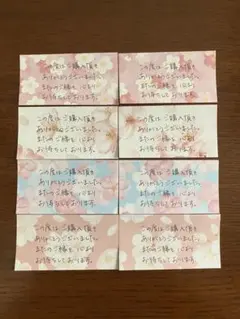 この度はご購入頂き
ありがとうございました。
またのご縁を心より
お待ちしております。
この度はご購入頂き
ありがとうございました。
またのご縁を心より
お待ちしております。
この度はご購入頂き
ありがとうございました。
またのご縁を心より
お待ちしております。
この度はご購入頂き
ありがとうございました。
またのご縁を心より
お待ちしております。
この度はご購入頂き
ありがとうございました。
またのご縁を心より
お待ちしております。
この度はご購入頂き
ありがとうございました。
またのご縁を心より
お待ちしております。
この度はご購入頂き
ありがとうございました。
またのご縁を心より
お待ちしております。
この度はご購入頂き
ありがとうございました。
またのご縁を心より
お待ちしております。